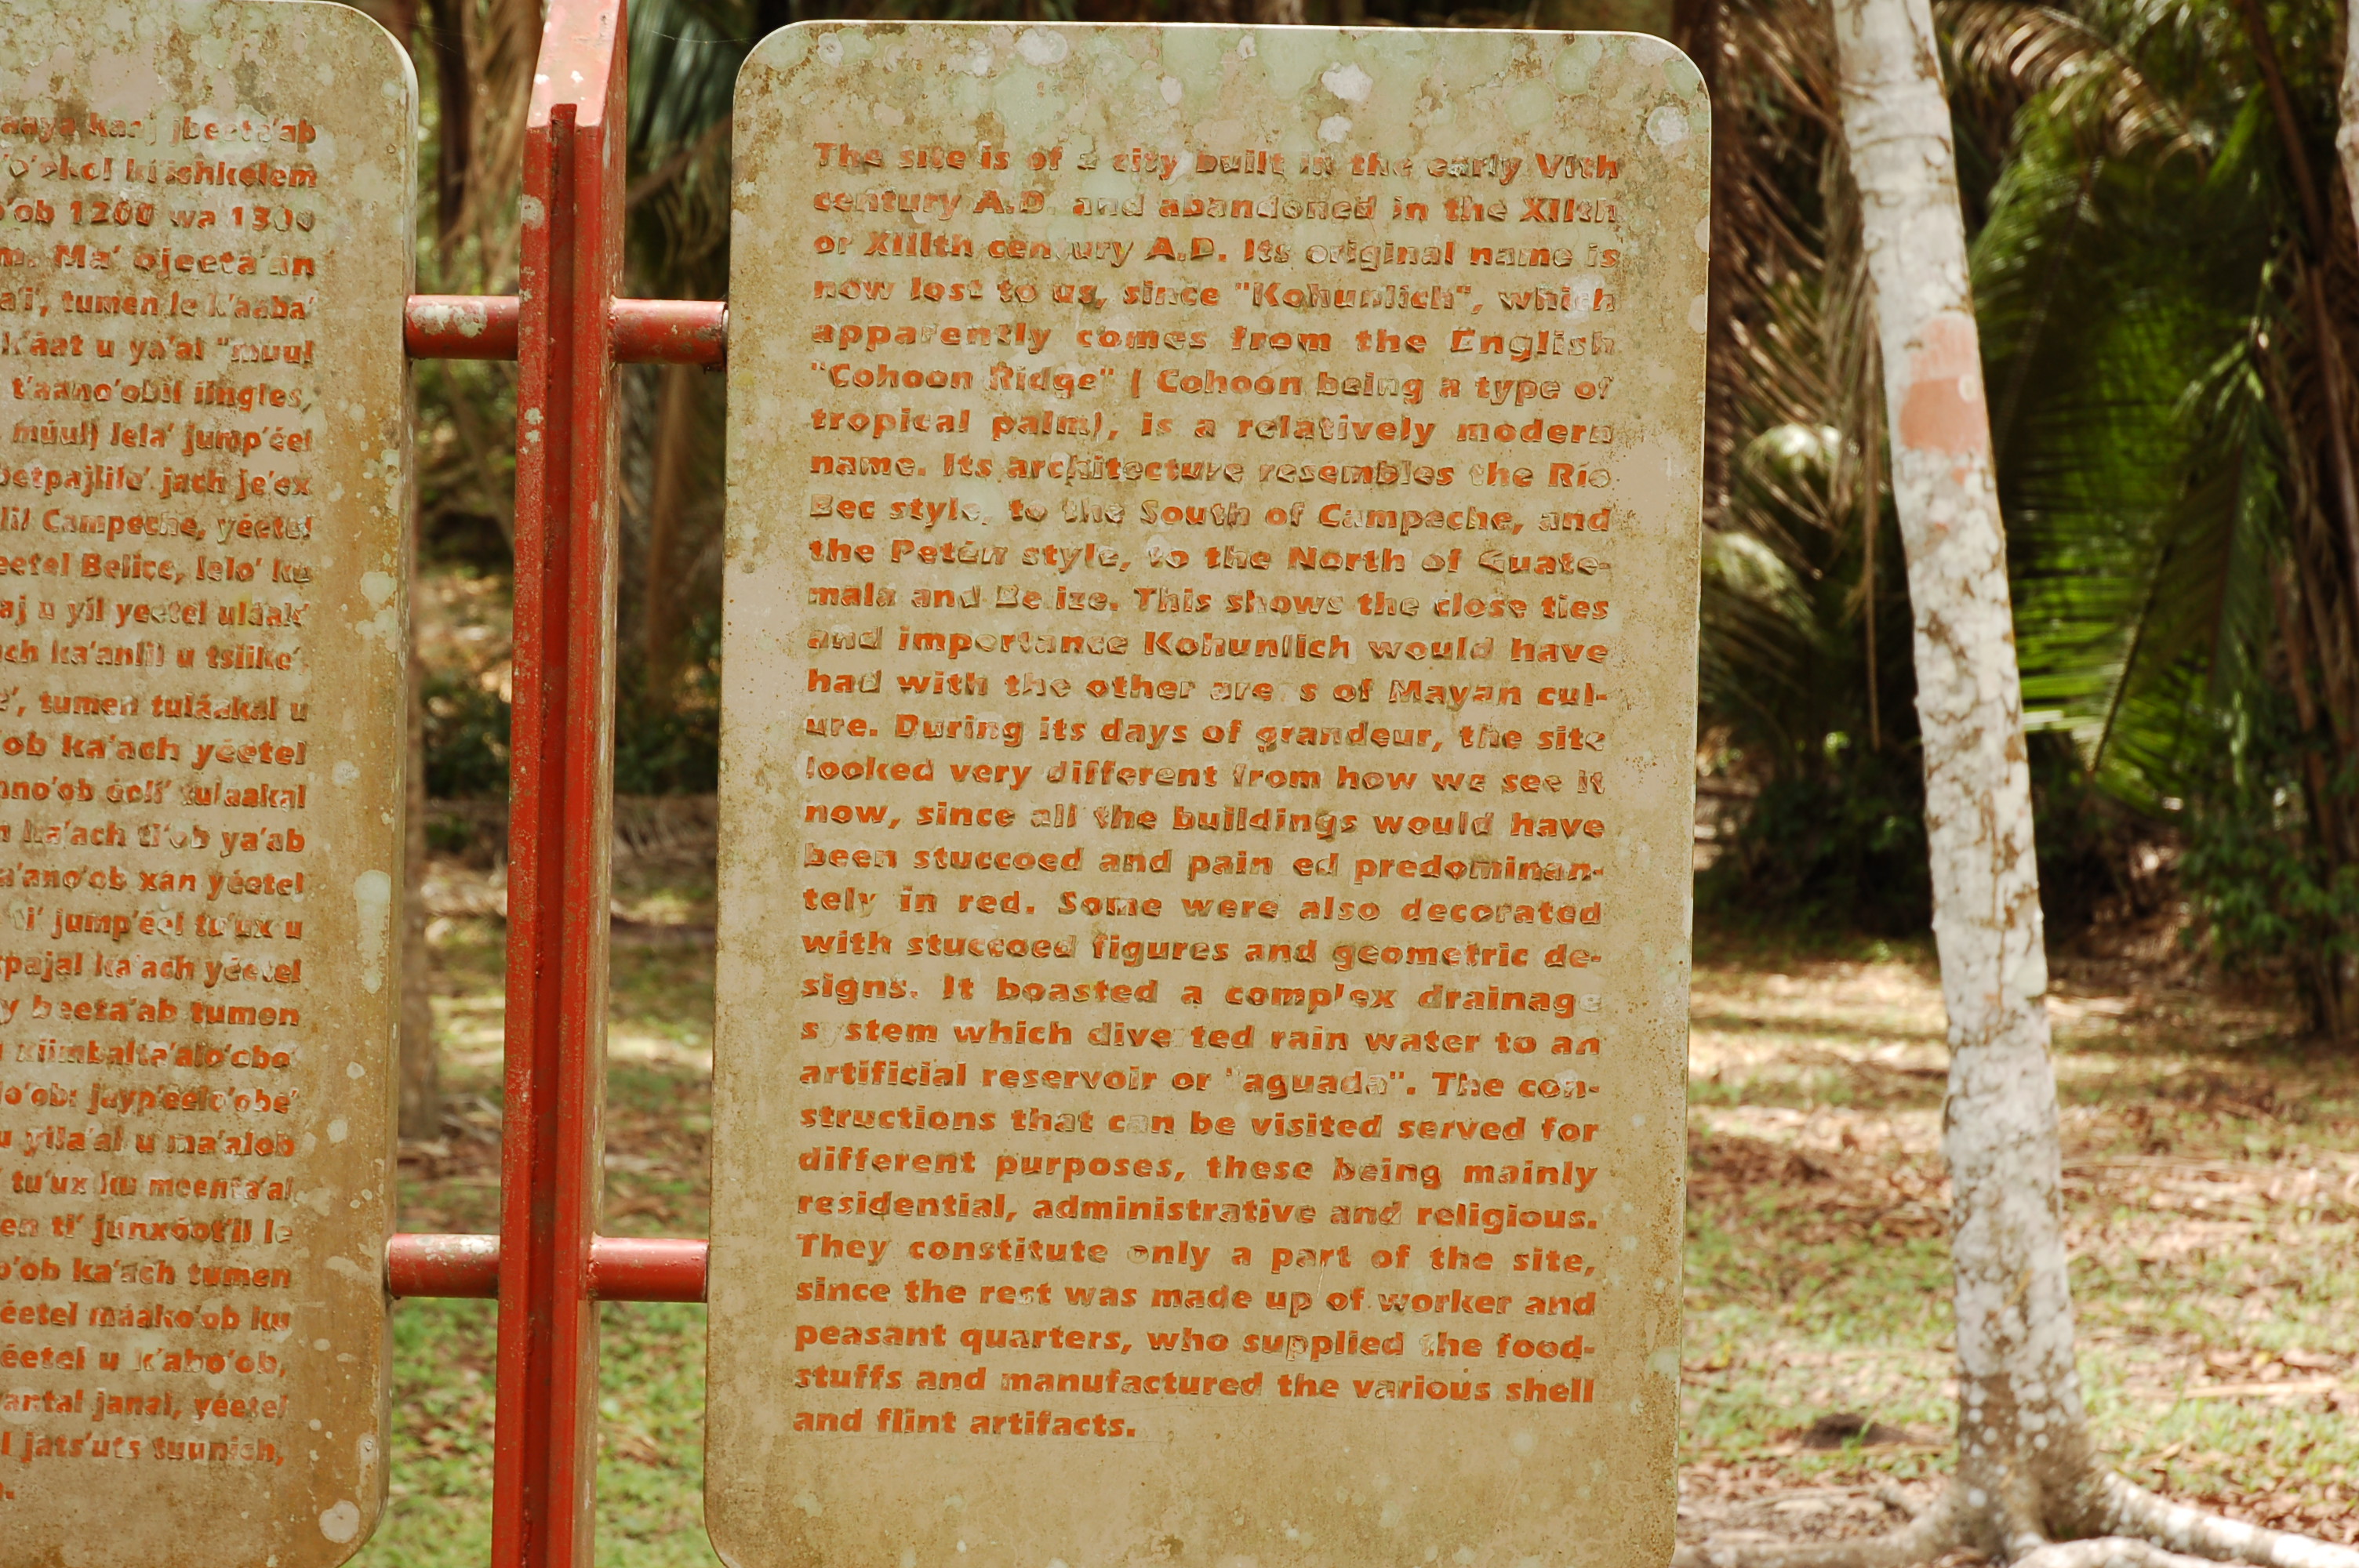 aaya kaaj jbeeta'ab
o'okol kiishkelem
o'ob 1200 wa 1300
m. Ma' ojeeta'an
a'i', tumen le k'aaba'
k'áat u ya'al "muul
t'aano'obil iingles,
múul) lela' jump'éel
betpajlile' jach je'ex
lil Campeche, yéetel
eetel Belice, lelo' ku
aj u yil yeetel uláak'
ch ka'anlil u tsiike'
e', tumen tuláakal u
'ob ka'ach yéetel
no'ob óoli' tulaakal
ka'ach ti'ob ya'ab
a'ano'ob xan yéetel
ti' jump'éel tu'ux u
tpajal ka'ach yéetel
y beeta'ab tumen
u xiimbalta'alo'obe'
o'ob: jayp'éelo'obe'
u yila'al u ma'alob
tu'ux ku meenta'al
en ti' junxóot'il le
o'ob ka'ach tumen
éetel máako'ob ku
éetel u k'abo'ob,
antal janal, yéetel
l jats'uts tuunich,
The site is of a city built in the early VIth
century A.D. and abandoned in the XIIth
or XIIIth century A.D. Its original name is
now lost to us, since "Kohunlich", which
apparently comes from the English
"Cohoon Ridge" ( Cohoon being a type of
tropical palm), is a relatively modern
name. Its architecture resembles the Río
Bec style, to the South of Campeche, and
the Petén style, to the North of Guate-
mala and Belize. This shows the close ties
and importance Kohunlich would have
had with the other are s of Mayan cul-
ure. During its days of grandeur, the site
looked very different from how we see it
now, since all the buildings would have
been stuccoed and pain ed predominan-
tely in red. Some were also decorated
with stuccoed figures and geometric de-
signs. It boasted a complex drainage
s stem which dive ted rain water to an
artificial reservoir or "aguada". The con-
structions that can be visited served for
different purposes, these being mainly
residential, administrative and religious.
They constitute only a part of the site,
since the rest was made up of worker and
peasant quarters, who supplied the food-
stuffs and manufactured the various shell
and flint artifacts.